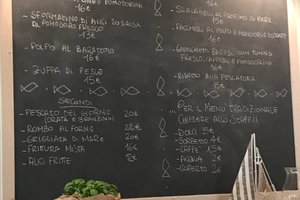 POMODORINI
16€
- SFORMATINO DI ALICI SU SALSA
DI POMODORO FRESCO
13€
- POLPO AL BARATTOLO
16€
- ZUPPA DI PESCE
15€
SECONDI
- PESCATO DEL GIORNO 22€
(ORATA E BRANZINO)
- ROMBO AL FORNO 22€
- GRIGLIATA DI MARE 20€
- FRITTURA MISTA 16€
- ALICI FRITTE 12€
AL PROFUMO DI MARE
15€
AL POLPO E MANDORLE TOSTATE
16€
- GNOCHETTI BARESI CON TONNO
FRESCO, CAPPERI E POMODORINI
16€
- RISOTTO ALLA PESCATORA
15€
...PER IL MENÙ TRADIZIONALE
CHIEDERE ALLO STAFF!!
- DOLCI 5€
- SORBETTO 4€
- CAFFE' 1,5€
- ACQUA 2€
- COPERTO 2€